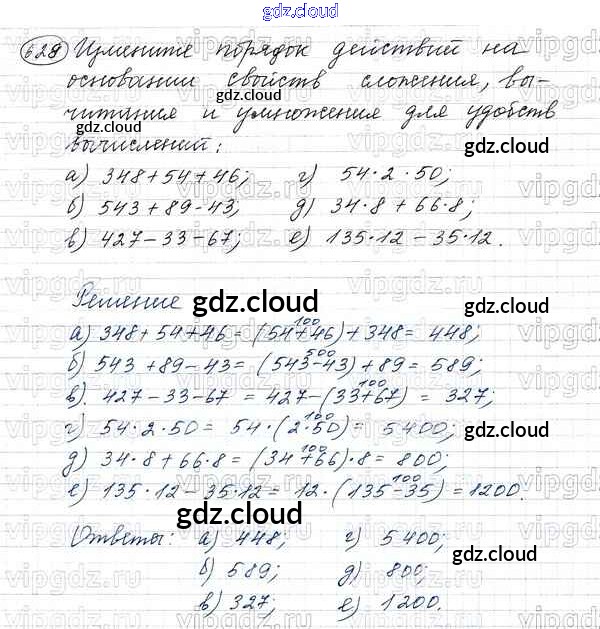 gdz.cloud
628 Измените порядок действий на
основании свойств сложения, вы-
читания и умножения для удобств
вычислений:
а) 348+54+46; г) 54·2·50;
б) 543+89-43; д) 34·8+66·8;
в) 427-33-67; е) 135·12-35·12.
Решение
а) 348+54+46 = (54+46)+348 = 448;
100
б) 543+89-43 = (543-43)+89 = 589;
500
в) 427-33-67 = 427-(33+67) = 327;
100
г) 54·2·50 = 54·(2·50) = 5400;
100
д) 34·8+66·8 = (34+66)·8 = 800;
100
е) 135·12-35·12 = 12·(135-35) = 1200.
100
Ответы: а) 448; г) 5400;
б) 589; д) 800;
в) 327; е) 1200.
gdz.cloud
vipgdz.ru